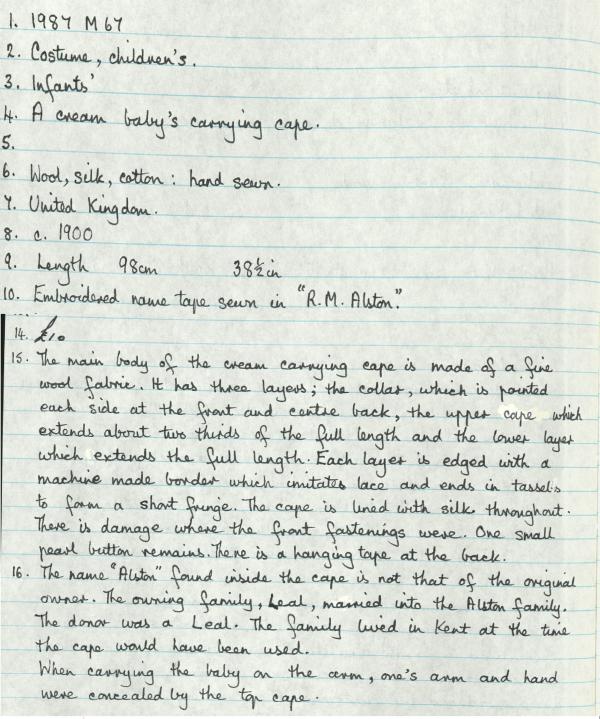 1. 1987 M 67
2. Costume, children's.
3. Infants'
4. A cream baby's carrying cape.
5.
6. Wool, silk, cotton: hand sewn.
7. United Kingdom.
8. c. 1900
9. Length 98cm 38½in
10. Embroidered name tape sewn in "R.M. Alston."
14. £10
15. The main body of the cream carrying cape is made of a fine
wool fabric. It has three layers; the collar, which is pointed
each side at the front and centre back, the upper cape which
extends about two thirds of the full length and the lower layer
which extends the full length. Each layer is edged with a
machine made border which imitates lace and ends in tassels
to form a short fringe. The cape is lined with silk throughout.
There is damage where the front fastenings were. One small
pearl button remains. There is a hanging tape at the back.
16. The name "Alston" found inside the cape is not that of the original
owner. The owning family, Leal, married into the Alston family.
The donor was a Leal. The family lived in Kent at the time
the cape would have been used.
When carrying the baby on the arm, one's arm and hand
were concealed by the top cape.